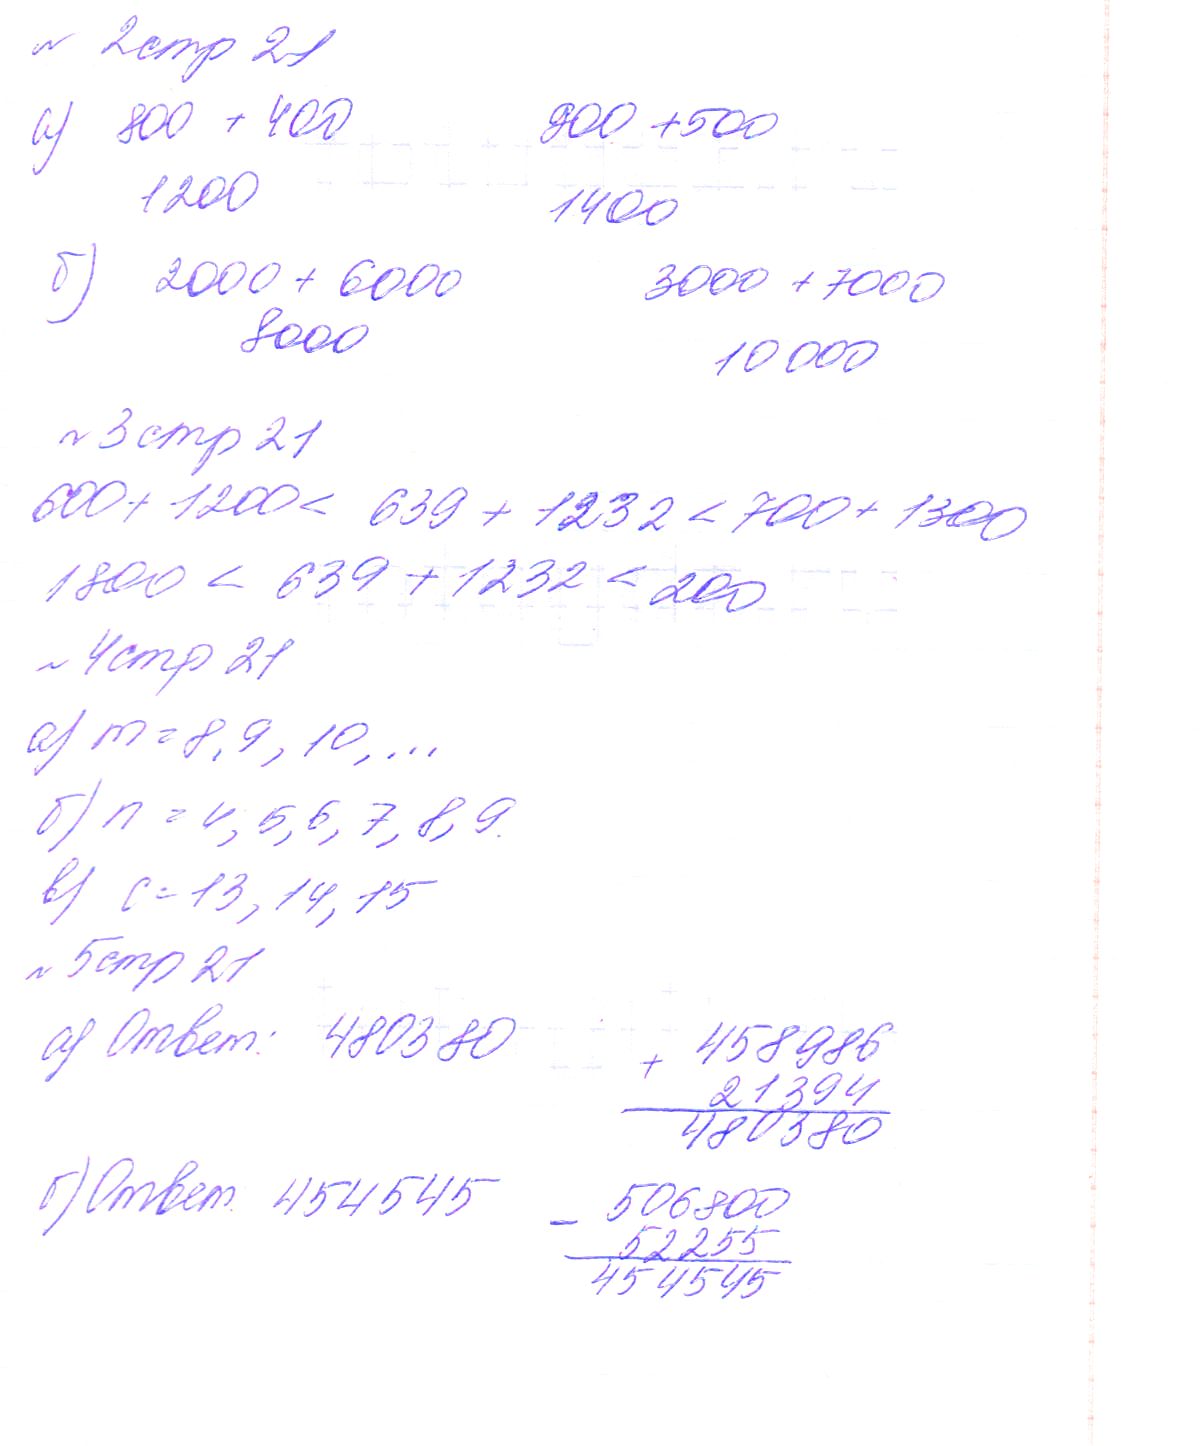 ~ 2 стр 21
а) 800 + 400 900 + 500
1200 1400
б) 2000 + 6000 3000 + 7000
8000 10 000
~ 3 стр 21
600 + 1200 < 639 + 1232 < 700 + 1300
1800 < 639 + 1232 < 200
~ 4 стр 21
а) m = 8, 9, 10, ...
б) n = 4, 5, 6, 7, 8, 9.
в) c = 13, 14, 15
~ 5 стр 21
а) Ответ: 480380
+ 458986
21394
480380
б) Ответ: 454545
- 506800
52255
454545